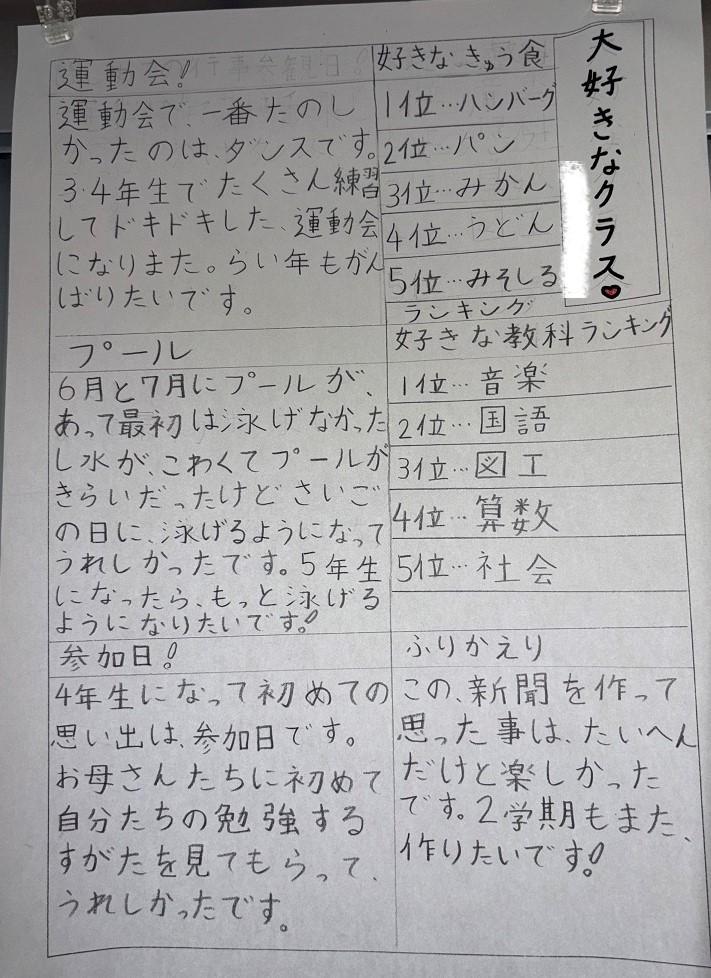 大好きなクラス
運動会!
運動会で、一番たのし
かったのは、ダンスです。
3・4年生でたくさん練習
してドキドキした、運動会
になりまた。らい年もがん
ばりたいです。
プール
6月と7月にプールが、
あって最初は泳げなかった
し水が、こわくてプールが
きらいだったけどさいご
の日に、泳げるようになって
うれしかったです。5年生
になったら、もっと泳げる
ようになりたいです!
参加日!
4年生になって初めての
思い出は、参加日です。
お母さんたちに初めて
自分たちの勉強する
すがたを見てもらって、
うれしかったです。
好きなきゅう食
1位…ハンバーグ
2位…パン
3位…みかん
4位…うどん
5位…みそしる
ランキング
好きな教科ランキング
1位…音楽
2位…国語
3位…図工
4位…算数
5位…社会
ふりかえり
この、新聞を作って
思った事は、たいへん
だけと楽しかった
です。2学期もまた、
作りたいです!